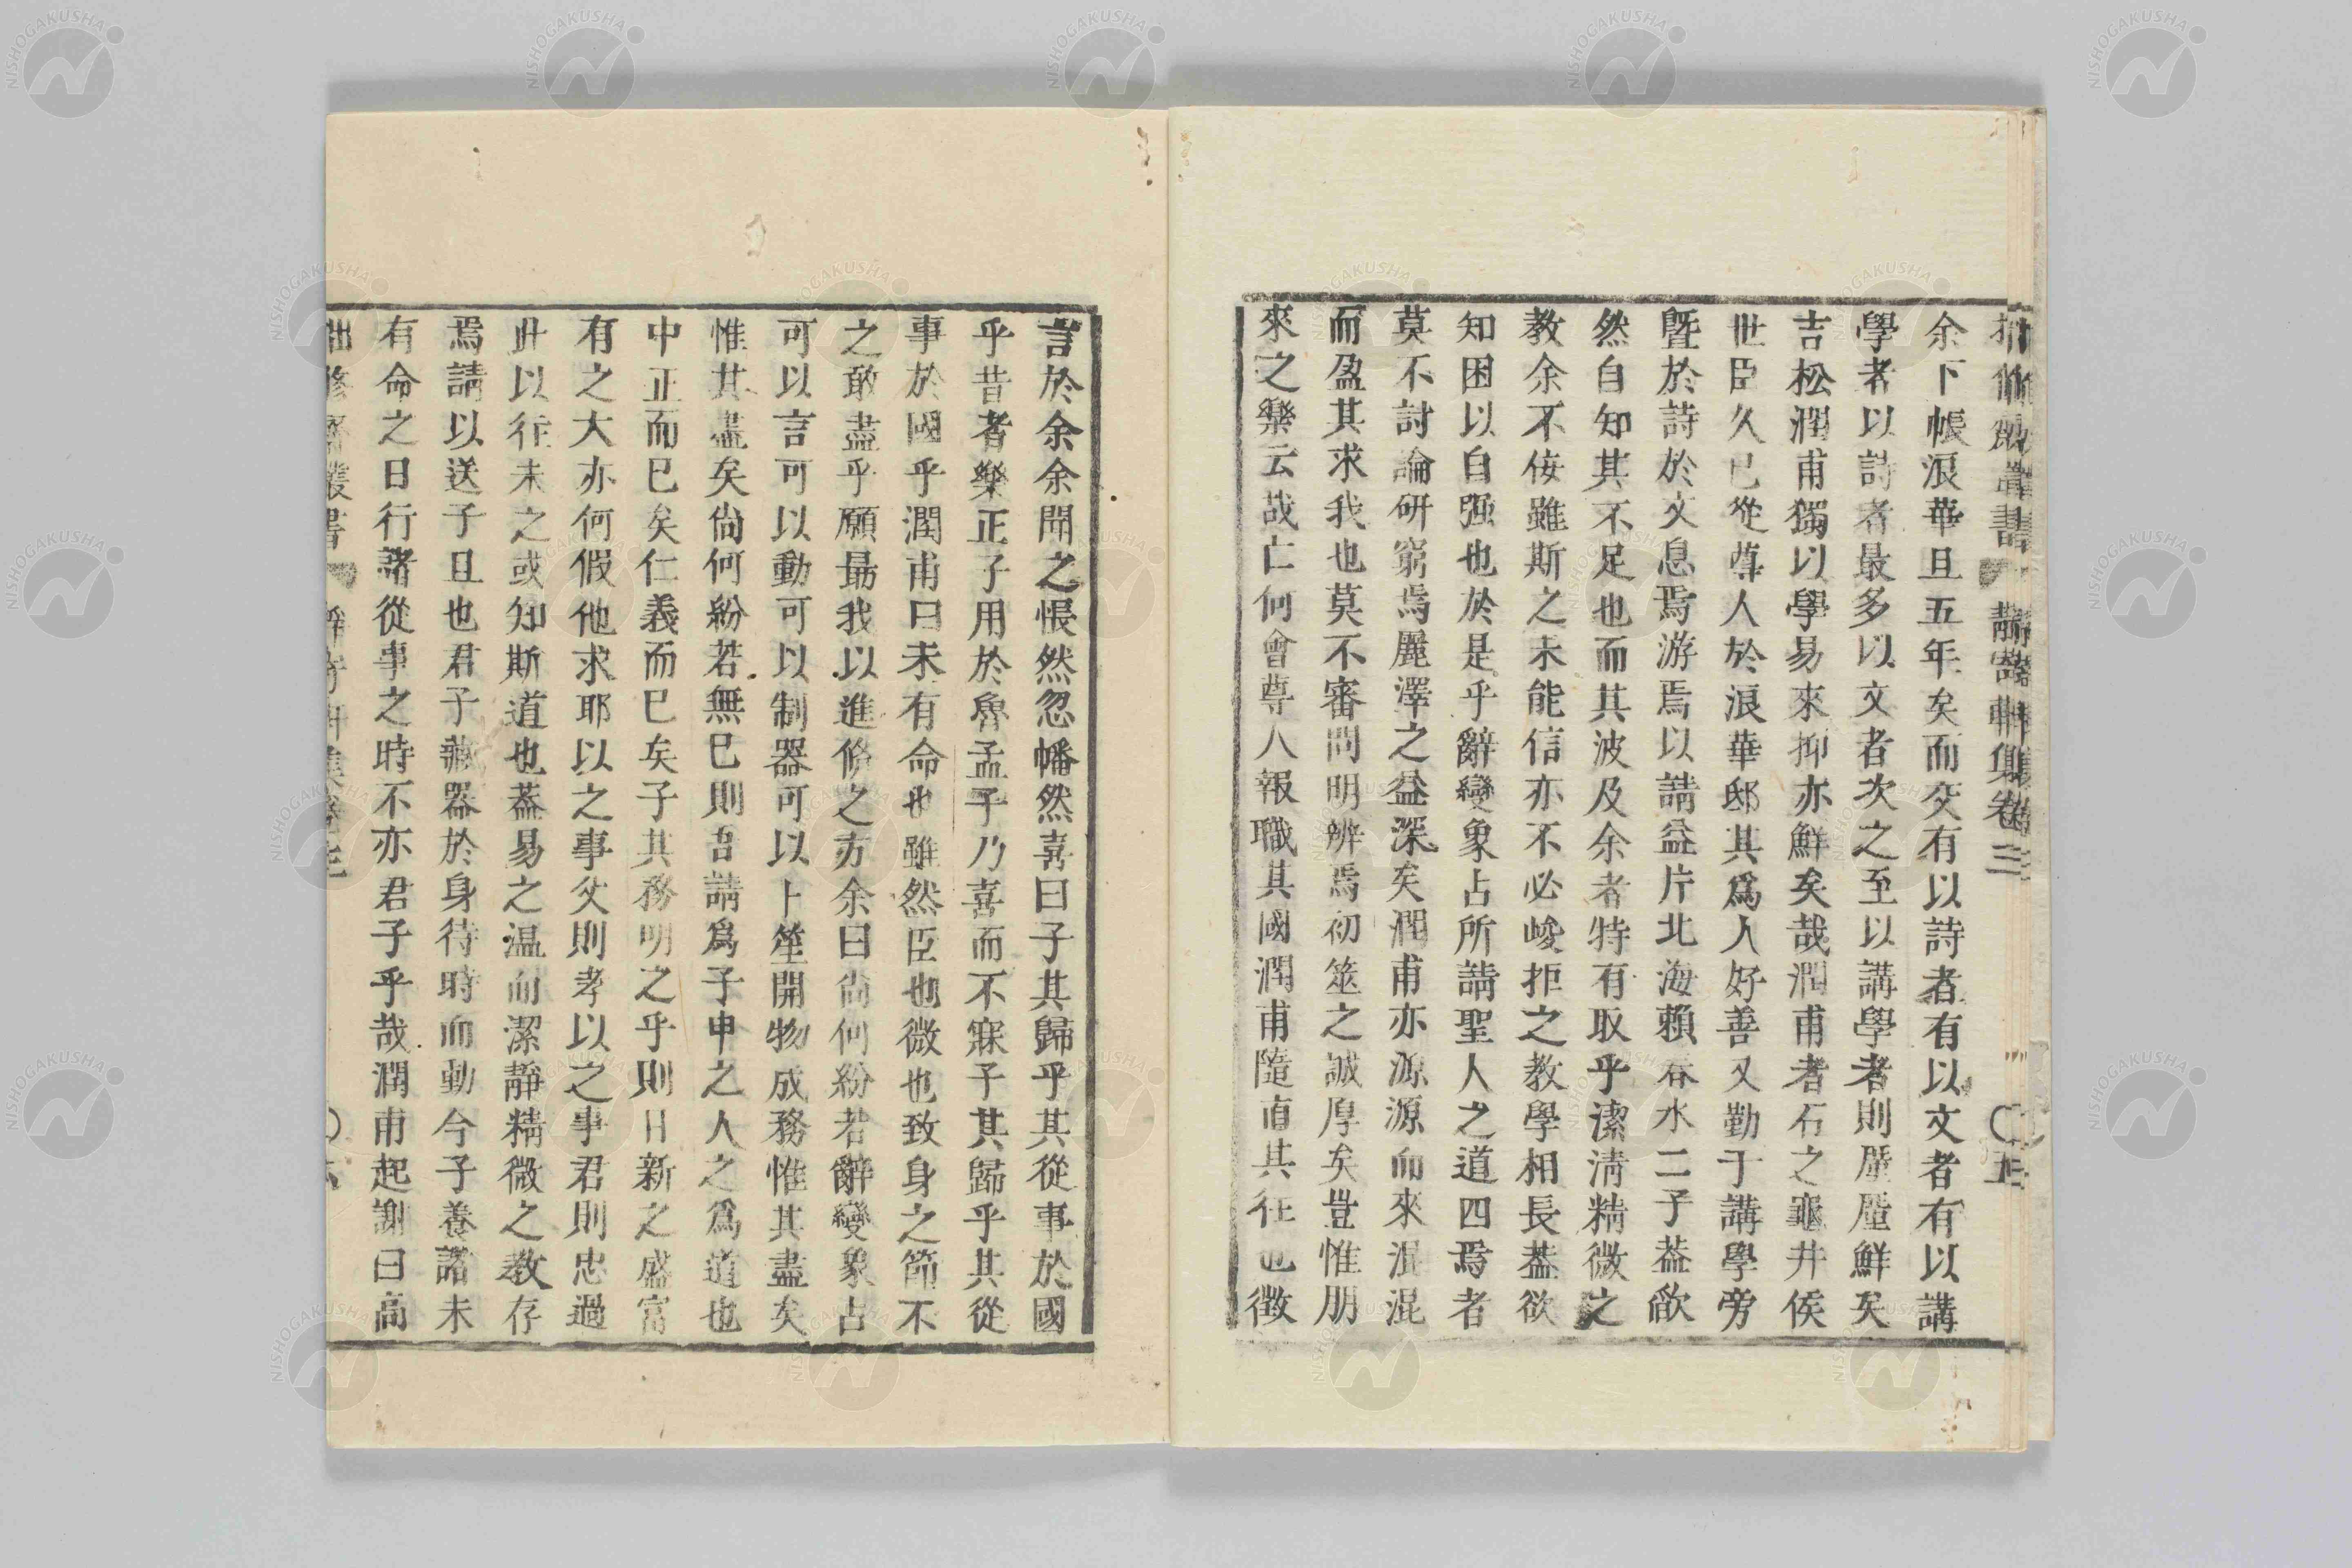 余下帳浪華且五年矣而交有以詩者有以文者有以講
學者以詩者最多以文者次之至以講學者則厪厪鮮矣
吉松潤甫獨以學易來抑亦鮮矣哉潤甫者石之龜井侯
世臣久已從尊人於浪華邸其爲人好善又勤于講學旁
曁於詩於文息焉游焉以請益片北海賴春水二子葢欿
然自知其不足也而其波及余者特有取乎潔淸精微之
教余不佞雖斯之未能信亦不必峻拒之教學相長葢欲
知困以自强也於是乎辭變象占所請聖人之道四焉者
莫不討論研窮焉麗澤之益深矣潤甫亦源源而來混混
而盈其求我也莫不審問明辨焉初筮之誠厚矣豈惟朋
來之樂云哉亡何會尊人報職其國潤甫隨直其往也徴
言於余余聞之悵然忽幡然喜曰子其歸乎其從事於國
乎昔者樂正子用於魯孟子乃喜而不寐子其歸乎其從
事於國乎潤甫曰未有命也雖然臣也微也致身之節不
之敢盡乎願最我以進脩之方余曰尙何紛若辭變象占
可以言可以動可以制器可以卜筮開物成務惟其盡矣
惟其盡矣尙何紛若無已則吾請爲子申之人之爲道也
中正而已矣仁義而已矣子其務明之乎則日新之盛富
有之大亦何假他求耶以之事父則孝以之事君則忠過
此以往未之或知斯道也葢易之温而潔靜精微之教存
焉請以送子且也君子藏器於身待時而動今子養諸未
有命之日行諸從事之時不亦君子乎哉潤甫起謝曰高